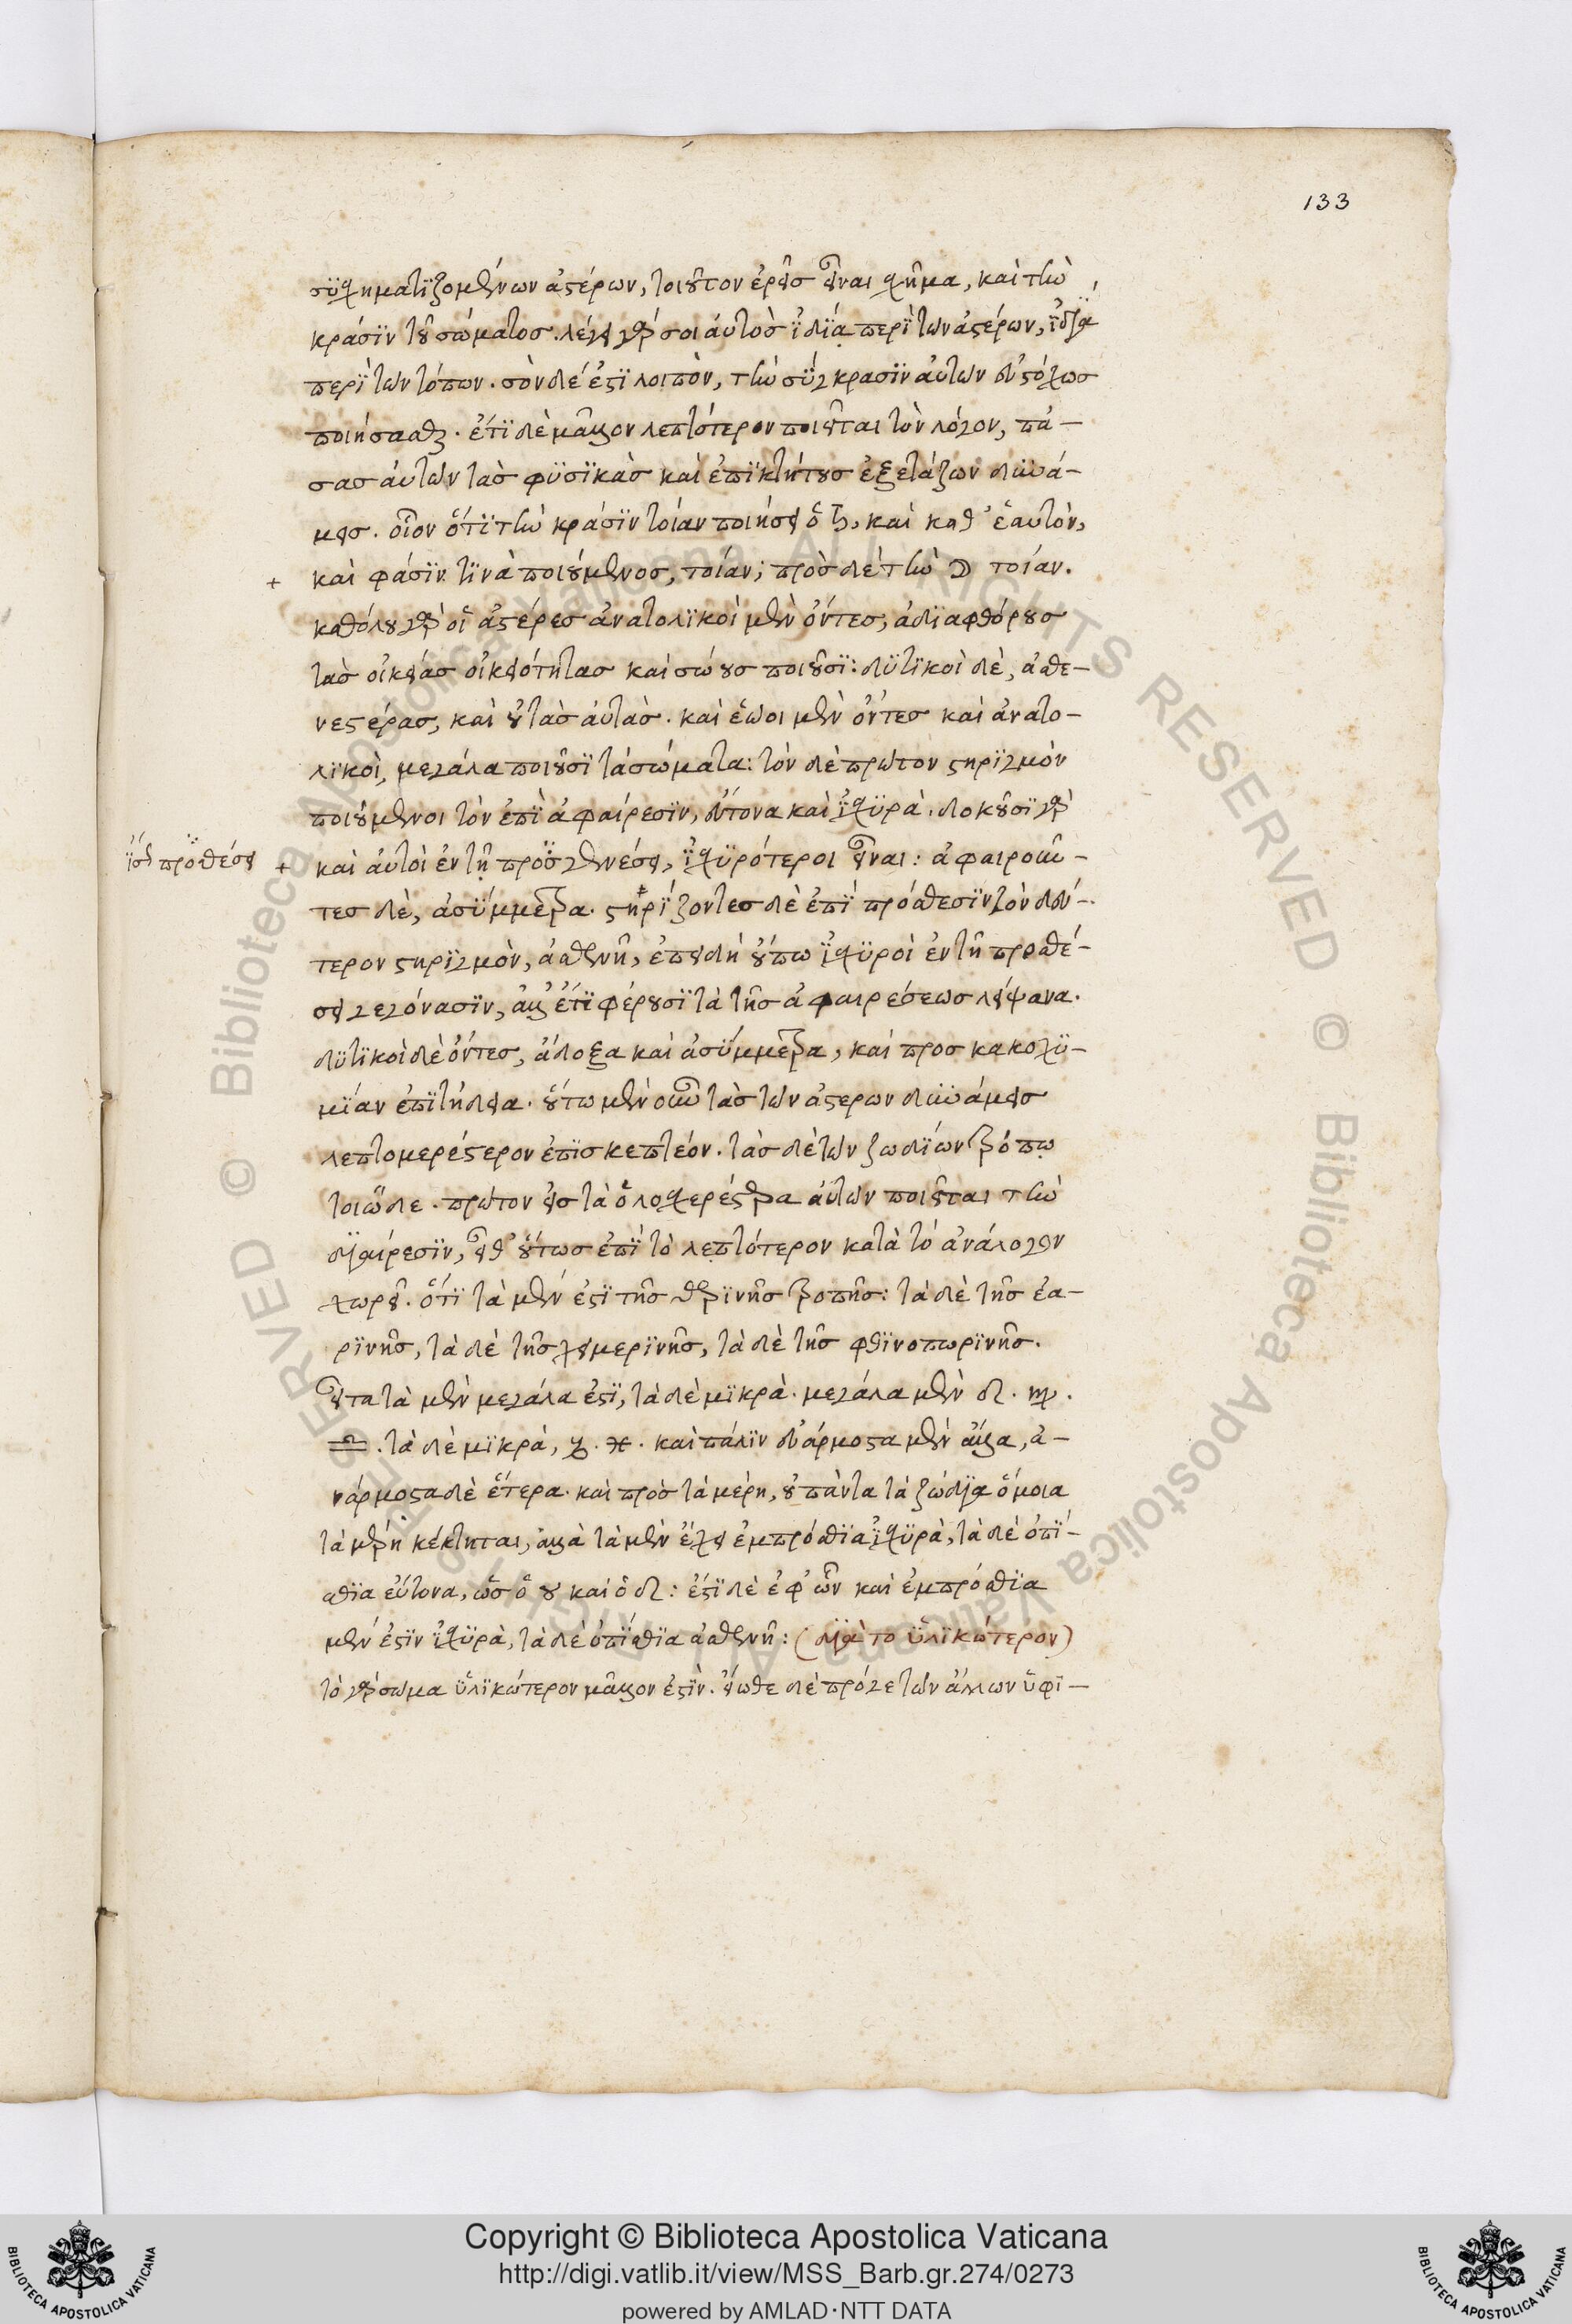 133
συσχηματιζομένων ἀστέρων, τοιοῦτον ἐρεῖς εἶναι σχῆμα, καὶ τὴν
κράσιν τοῦ σώματος. λέγει γάρ σοι αὐτὸς ἰδίᾳ περὶ τῶν ἀστέρων, ἰδίᾳ
περὶ τῶν τόπων. σὸν δέ ἐστι λοιπὸν, τὴν σύγκρασιν αὐτῶν εὐστόχως
ποιήσασθαι. ἔτι δὲ μᾶλλον λεπτότερον ποιεῖται τὸν λόγον, πά-
σας αὐτῶν τὰς φυσικὰς καὶ ἐπικτήτους ἐξετάζων δυνά-
μεις. οἷον ὅτι τὴν κράσιν τοίαν ποιήσει ὁ ♄, καὶ καθ' ἑαυτὸν,
+ καὶ φάσιν τινὰ ποιούμενος, τοίαν; πρὸς δὲ τὴν ☽ τοίαν.
καθόλου γὰρ οἱ ἀστέρες ἀνατολικοὶ μὲν ὄντες, ἀδιαφθόρους
τὰς οἰκείας οἰκειότητας καὶ σώους ποιοῦσι: δυτικοὶ δὲ, ἀσθε-
νεστέρας, καὶ οὐ τὰς αὐτάς. καὶ ἑῶοι μὲν ὄντες καὶ ἀνατο-
λικοὶ, μεγάλα ποιοῦσι τὰ σώματα: τὸν δὲ πρῶτον στηριγμὸν
ποιούμενοι τὸν ἐπὶ ἀφαίρεσιν, εὔτονα καὶ ἰσχυρά. δοκοῦσι γὰρ
ἴσως προσθέσει
+ καὶ αὐτοὶ ἐν τῇ προσγενέσει, ἰσχυρότεροι εἶναι: ἀφαιροῦν-
τες δὲ, ἀσύμμετρα. στηρίζοντες δὲ ἐπὶ πρόσθεσιν τὸν δεύ-
τερον στηριγμὸν, ἀσθενῆ, ἐπειδὴ οὔπω ἰσχυροὶ ἐν τῇ προσθέ-
σει γεγόνασιν, ἀλλ' ἔτι φέρουσι τὰ τῆς ἀφαιρέσεως λείψανα.
δυτικοὶ δὲ ὄντες, ἄδοξα καὶ ἀσύμμετρα, καὶ προς κακοχυ-
μίαν ἐπιτήδεια. οὕτω μὲν οὖν τὰς τῶν ἀστερων δυνάμεις
λεπτομερέστερον ἐπισκεπτέον. τὰς δὲ τῶν ζωδίων τρόπῳ
τοιῷδε. πρῶτον εἰς τὰ ὁλοσχερέστερα αὐτῶν ποιεῖται τὴν
διαίρεσιν, εἶθ' οὕτως ἐπὶ τὸ λεπτότερον κατὰ τὸ ἀνάλογον
χωρεῖ. ὅτι τὰ μέν ἐστι τῆς θερινῆς τροπῆς: τὰ δὲ τῆς ἐα-
ρινῆς, τὰ δὲ τῆς χειμερινῆς, τὰ δὲ τῆς φθινοπωρινῆς.
εἶτα τὰ μὲν μεγάλα ἐστὶ, τὰ δὲ μικρά. μεγάλα μὲν ♌. ♍.
♎. τὰ δὲ μικρὰ, ♑. ♓. καὶ πάλιν εὐάρμοστα μὲν ἄλλα, ἀ-
νάρμοστα δὲ ἕτερα. καὶ πρὸς τὰ μέρη, οὐ πάντα τὰ ζώδια ὅμοια
τὰ μέρη κέκτηται, ἀλλὰ τὰ μὲν ἔχει ἐμπρόσθια ἰσχυρὰ, τὰ δὲ ὀπί-
σθια εὔτονα, ὡς ὁ ♉ καὶ ὁ ♌: ἔστι δὲ ἐφ' ὧν καὶ ἐμπρόσθια
μέν ἐστιν ἰσχυρὰ, τὰ δὲ ὀπίσθια ἀσθενῆ: (διὰ το ὑλικώτερον)
τὸ γὰρ σωμα ὑλικώτερον μᾶλλον ἐστίν. εἴωθε δὲ πρός γε τῶν ἄλλων ὑφι-
Copyright © Biblioteca Apostolica Vaticana
http://digi.vatlib.it/view/MSS_Barb.gr.274/0273
powered by AMLAD·NTT DATA